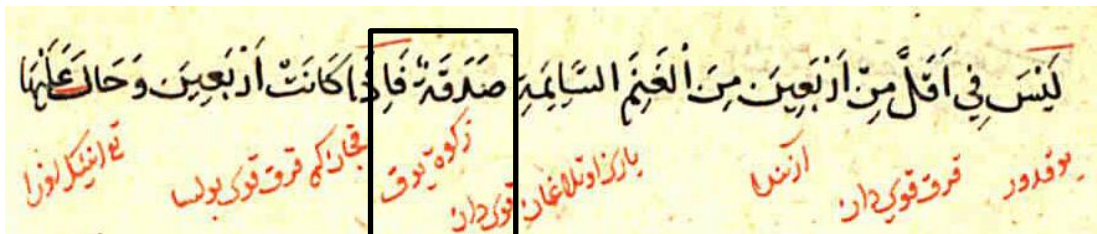 لَيْسَ فِي اَقَلَّ مِنْ اَرْبَعِينَ مِنَ الْغَنَمِ السَّايِمَةِ صَدَقَةٌ فَاِذَا كَانَتْ اَرْبَعِينَ وَحَالَ عَلَيْهَا
يوقدور قرق قوي دان ازىندا يازىدا اوتلاغان قوي دان زكوة يوق قچان كم قرق قوي بولسا